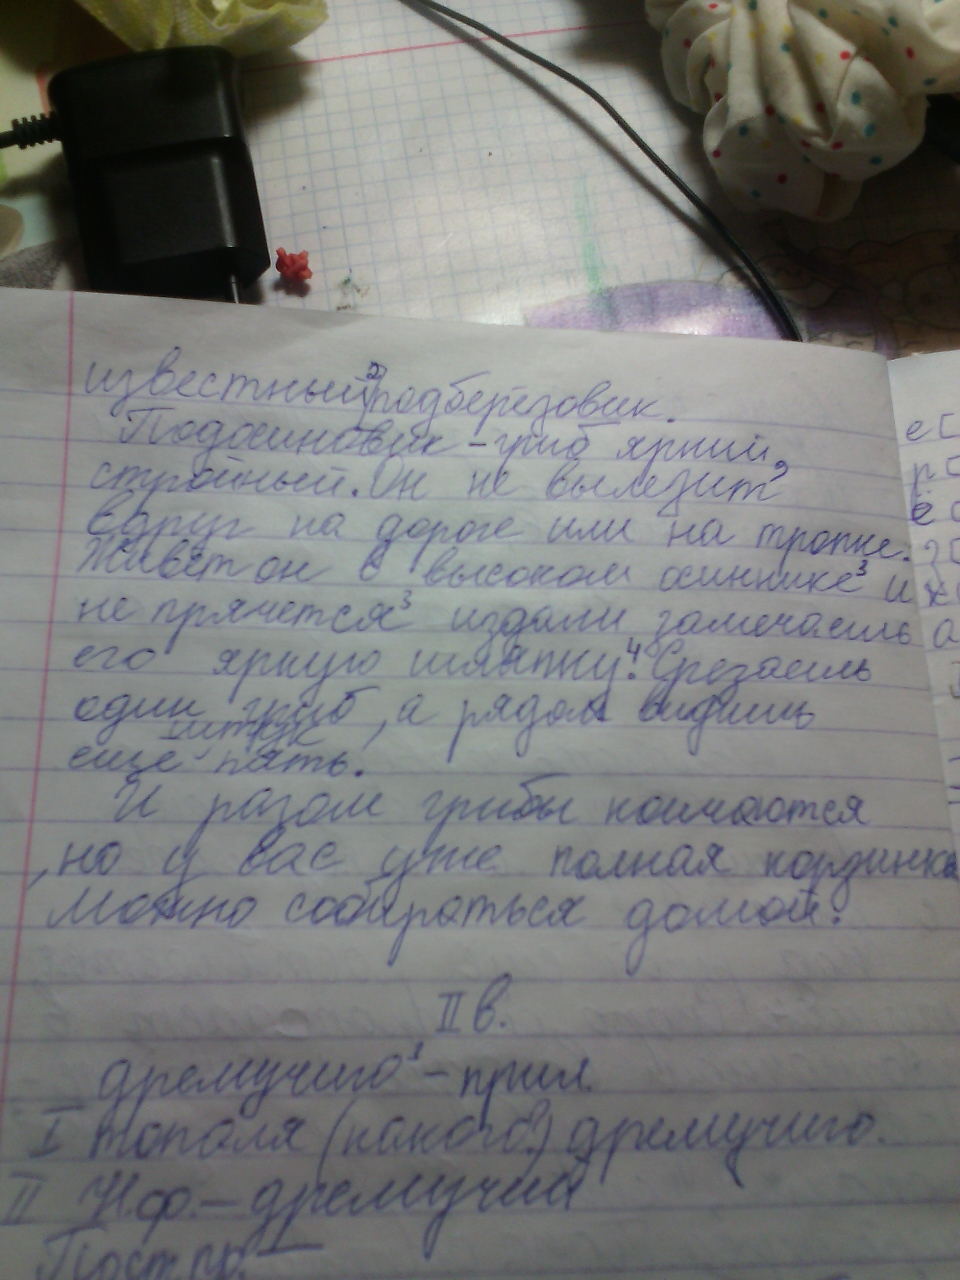 известный² подберёзовик.
Подосиновик - гриб яркий,
стройный. Он не вылезит²
вдруг на дороге или на тропке.
Живёт он в высоком осиннике³ и
не прячется³ издали замечаешь
его яркую шляпку⁴. Срезаешь
один гриб, а рядом видишь
штук
еще пять.
И разом грибы кончаются
, но у вас уже полная корзинка
Можно собираться домой.
II в.
дремучиго¹ - прил.
I тополя (какого?) дремучиго.
II Н.ф. - дремучий
Пост. пр.